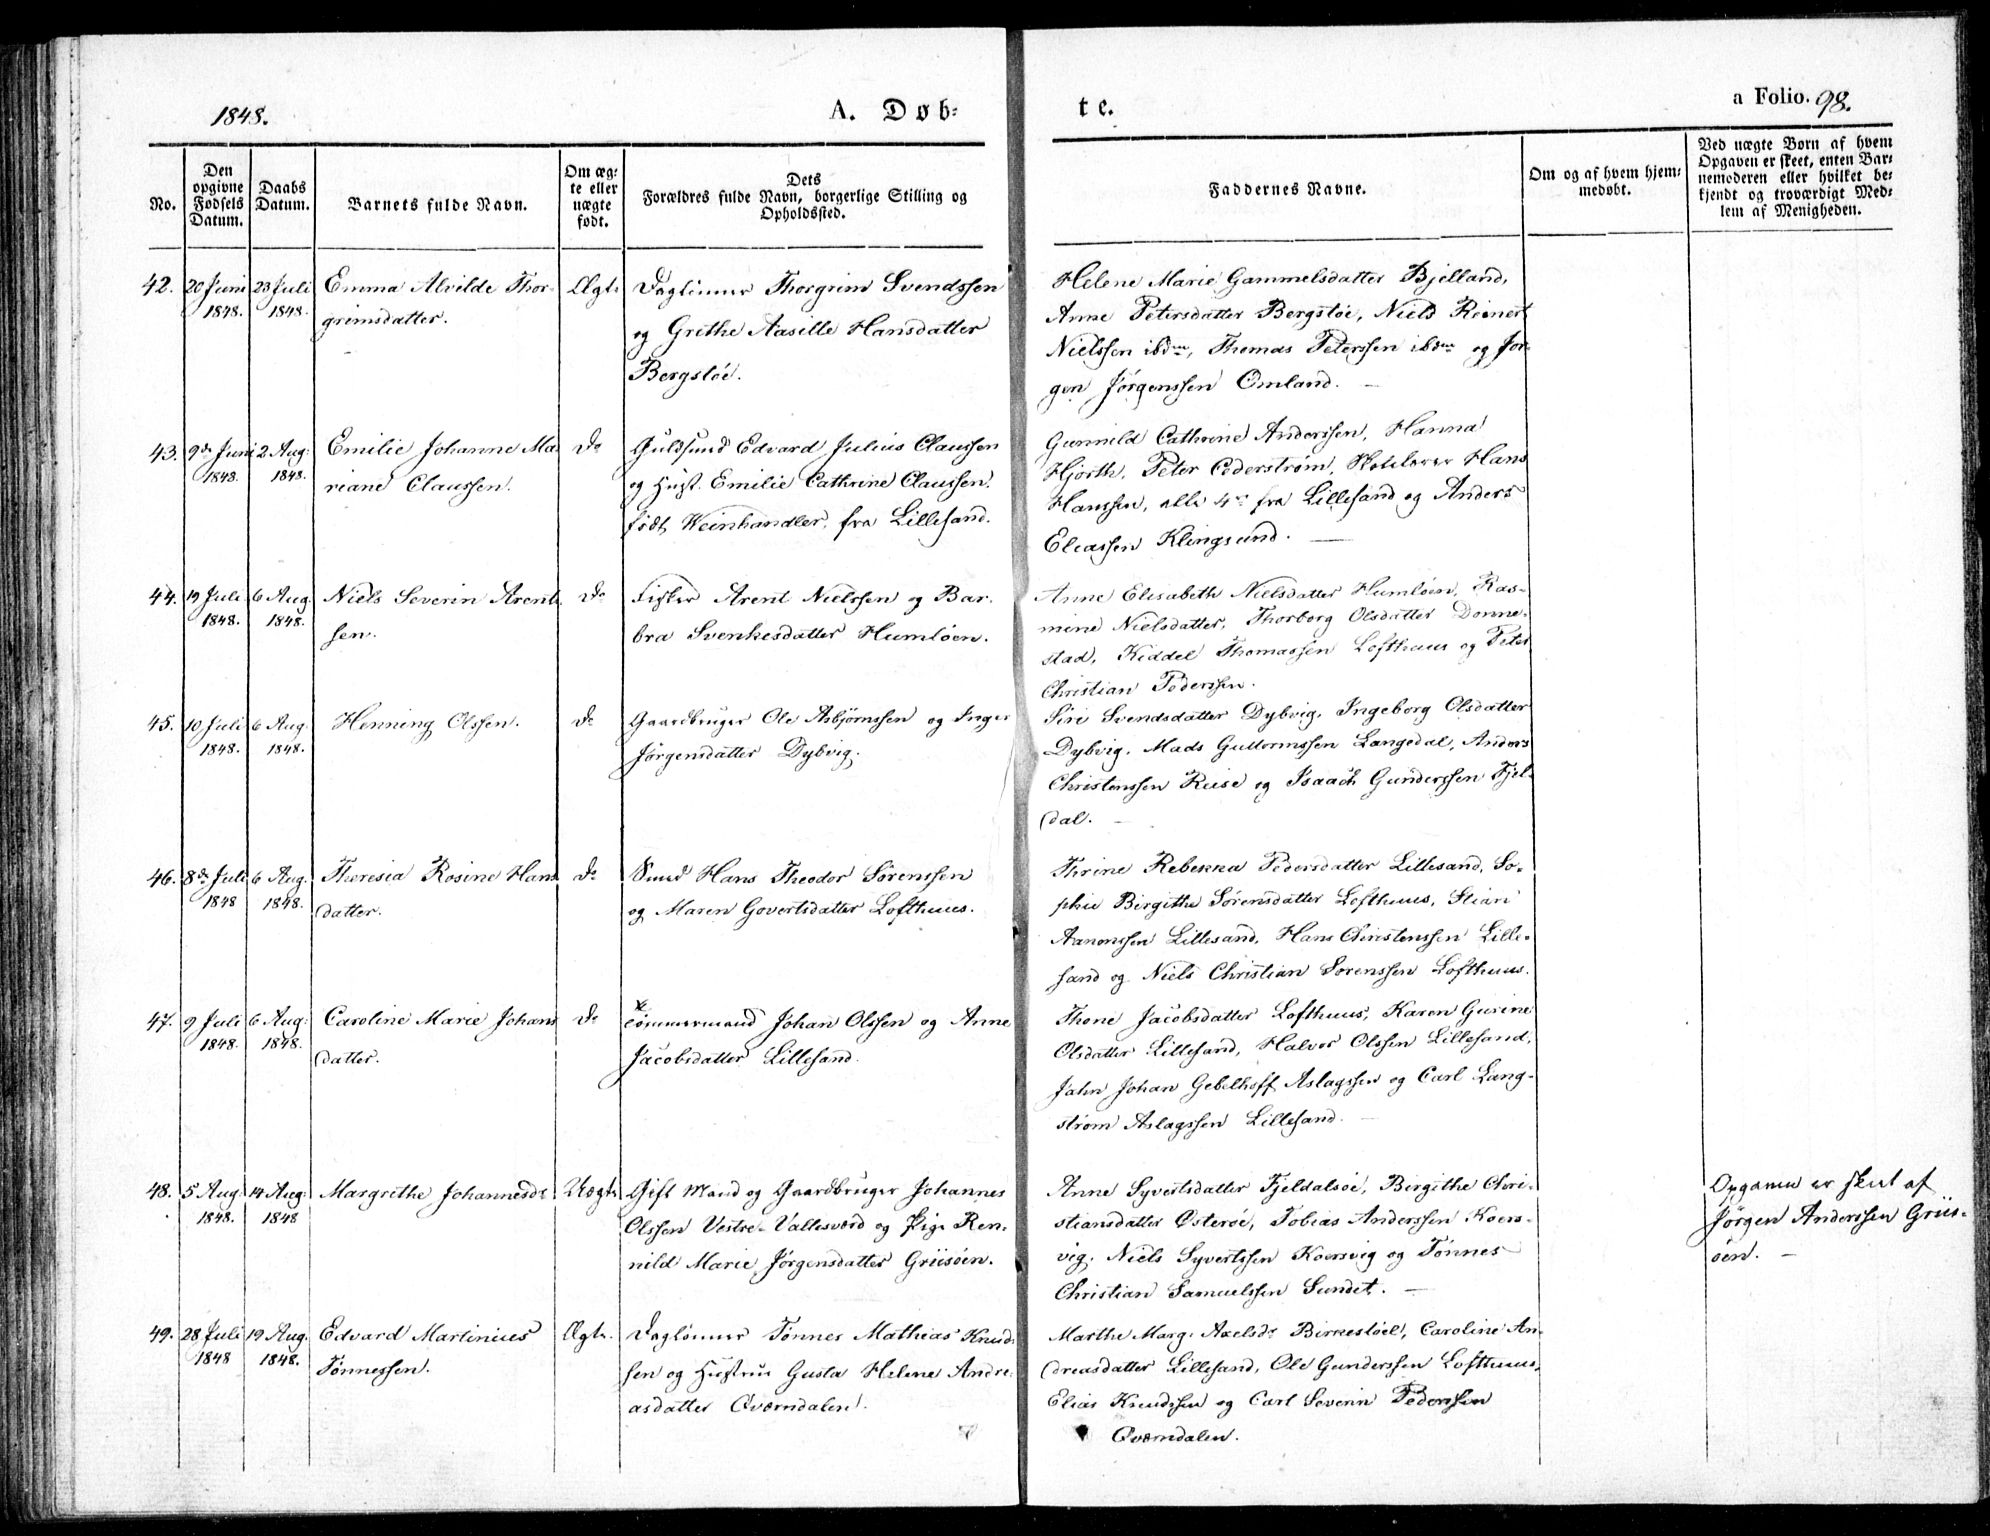 1848.
A. Døb-
te.
a Folio. 98.
No.
Den opgivne Fødsels Datum.
Daabs Datum.
Barnets fulde Navn.
Om æg- te eller uægte født.
Dets Forældres fulde Navn, borgerlige Stilling og Opholdssted.
Faddernes Navne.
Om og af hvem hjem- medøbt.
Ved uægte Børn af hvem Opgaven er skeet, enten Bar- nemoderen eller hvilket be- kjendt og troværdigt Med- lem af Menigheden.
42. 20 Juni 1848. 23 Juli 1848. Emma Alvilde Thor-
grimsdatter.
Ægte
Dagl��nner Thorgrim Svendssen
og Grethe Aasille Hansdatter
Bergsløe.
Helene Marie Gammelsdatter Bjelland,
Anne Petersdatter Bergsløe, Niels Reinert
Nielssen ibdm, Thomas Peterssen ibdm og Jør-
gen Jørgenssen Omland. —
43. 9de Juni 1848. 2 Aug: 1848. Emilie Johanne Ma
riane Claussen.
Do
Guldsmed Edvard Julius Claussen
og Hust. Emilie Cathrine Claussen
født Weinhandler, fra Lillesand.
Gunnild Cathrine Anderssen, Hanna
Hjorth, Peter Cederstrøm, Skolelærer Hans
Hanssen, alle 4re fra Lillesand og Anders
Eliassen Klingsund. —
44. 19 Juli 1848. 6 Aug. 1848. Niels Severin Arent
sen.
Do
Fisker Arent Nielssen og Bar-
bra Svenkesdatter Humløen.
Anne Elisabeth Nielsdatter Humløen, Ras-
mine Nielsdatter, Thorborg Olsdatter Donne-
stad, Kiddel Thomassen Lofthuus og Peter
Christian Pederssen.
45. 10 Juli 1848. 6 Aug: 1848. Henning Olssen.
Do
Gaardbruger Ole Asbjørnssen og Inger
Jørgensdatter Dybvig.
Siri Svendsdatter Dybvig, Ingeborg Olsdatter
Dybvig, Mads Guttormssen Langedal, Anders
Christenssen Ruse og Isaach Gunderssen Fjel-
dal. —
46. 8de Juli 1848 6 Aug. 1848. Theresia Rosine Hans
datter.
Do
Smed Hans Theodor Sørenssen
og Maren Govertsdatter Lofthuus.
Thrine Rebekka Pedersdatter Lillesand, So-
phie Birgithe Sørensdatter Lofthuus, Stian
Aanonssen Lillesand, Hans Christenssen Lille-
sand og Niels Christian Sørenssen Lofthuus.
47. 9 Juli 1848. 6 Aug: 1848. Caroline Marie Johans
datter.
Do
Tømmermand Johan Olssen og Anne
Jacobsdatter Lillesand.
Thone Jacobsdatter Lofthuus, Karen Gurine
Olsdatter Lillesand, Halvor Olssen Lillesand,
Jahn Johan Gebelhoff Aslagssen og Carl Lang-
strøm Aslagssen Lillesand. —
48. 5 Aug: 1848. 14 Aug: 1848 Margrethe Johannesdr
Uægte
Gift Mand og Gaardbruger Johannes
Olssen Vestre-Vallesværd og Pige Ren-
nild Marie Jørgensdatter Griisøen.
Anne Syvertsdatter Fjeldalsøe, Birgithe Chri-
stiansdatter Østerøe, Tobias Anderssen Koers-
vig, Niels Syvertssen Koersvig og Tønnes
Christian Samuelssen Sundet. —
Opgaven er skeet af
Jørgen Anderssen Griis-
øen. —
49. 28 Juli 1848 19 Aug. 1848. Edvard Martinius
Tønnessen.
Ægte.
Daglønner Tønnes Mathias Knud-
sen og Hustrue Gusta Helene Andre-
asdatter Qværndalen.
Marthe Marg. Axelsdr Birkestøel, Caroline An-
dreasdatter Lillesand, Ole Gunderssen Lofthuus,
Elias Knudssen og Carl Severin Pederssen
Qværndalen.